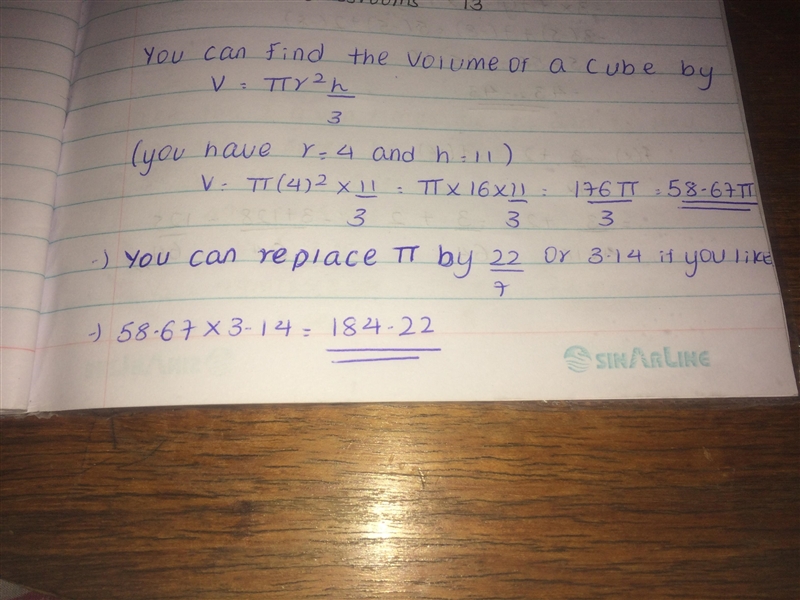 13
You can find the volume of a cube by
V = πr² h/3
(you have r = 4 and h = 11)
V = π(4)² × 11/3 = π × 16 × 11/3 = 176π/3 = 58.67π
·) you can replace π by 22/7 or 3.14 if you like
·) 58.67 × 3.14 = 184.22
SINARLINE